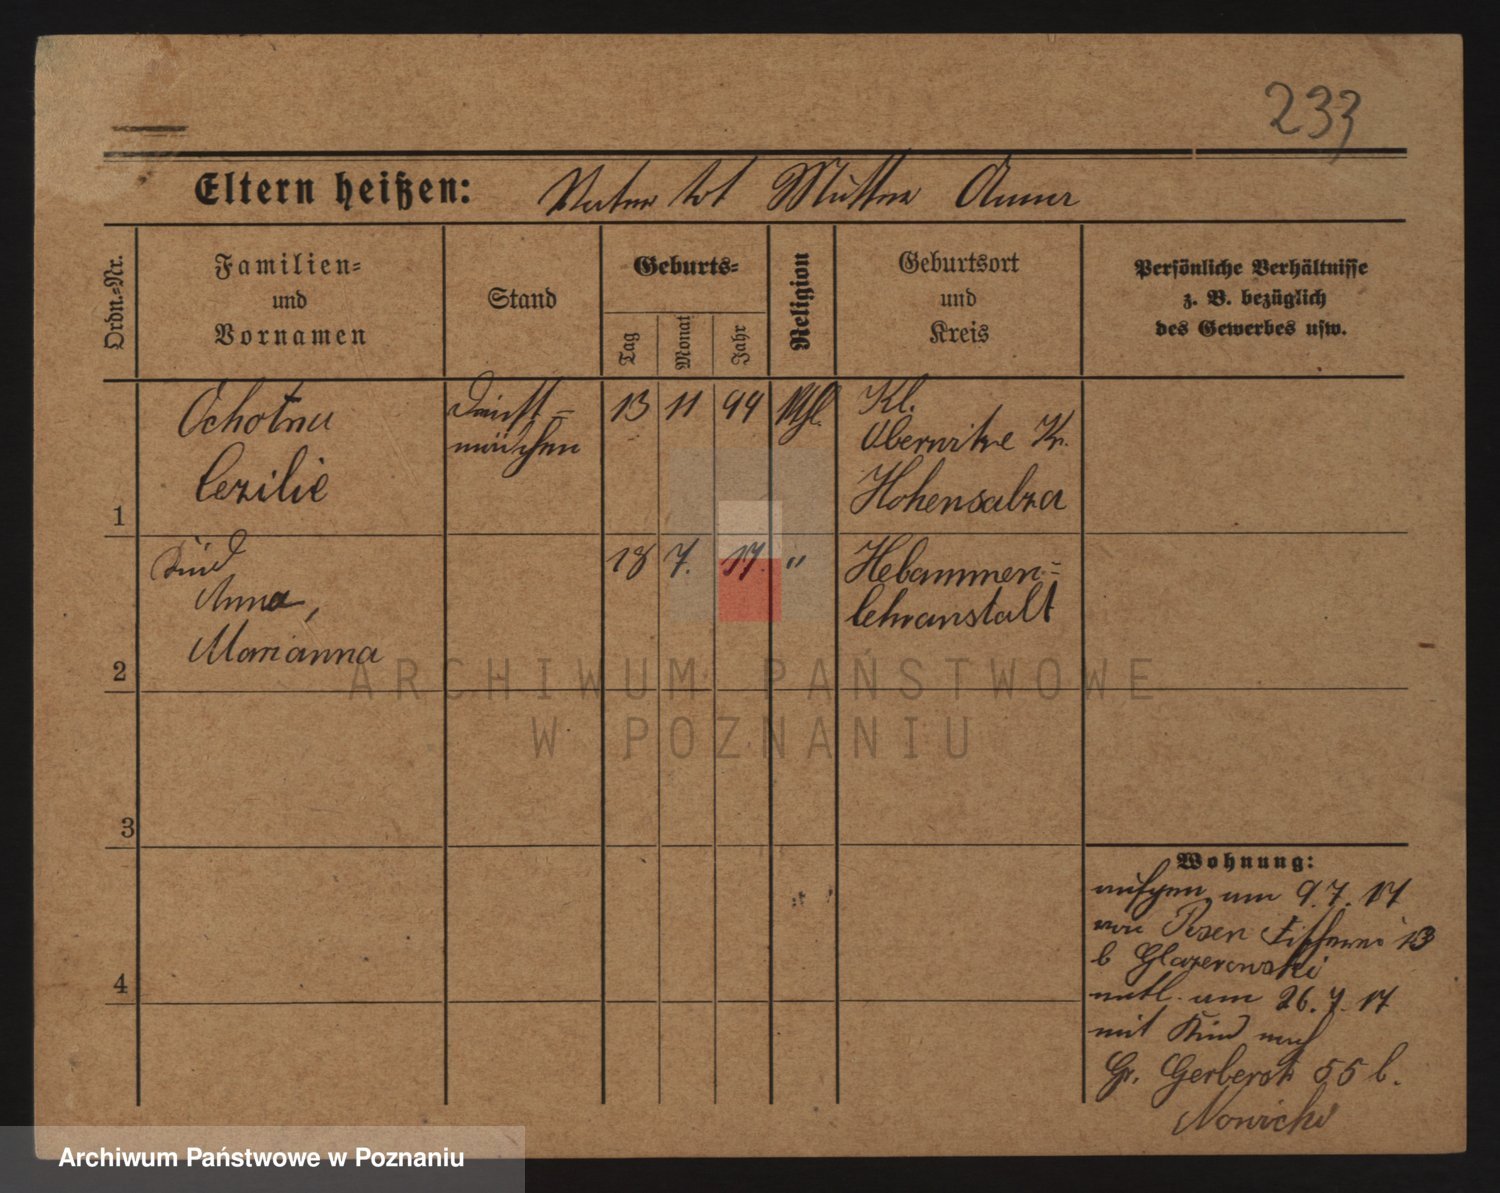 233
Eltern heißen: Vater tot Mutter Anna
Ordn.-Nr.
Familien-
und
Vornamen
Stand
Geburts-
Tag
Monat
Jahr
Religion
Geburtsort
und
Kreis
Persönliche Verhältnisse
z. B. bezüglich
des Gewerbes usw.
1
Ochotna
Cezilie
Dienst-
mädchen
13 11 94 kth.
Kl.
Kr.
Hohensalza
2
Kind
Anna,
Marianna
18 7. 17. "
Hebammen-
lehranstalt
3
4
Wohnung:
aufgen. am 9.7.17
von Posen Fischerei 13
b Glazerowski
entl. am 26.7.17
mit Kind nach
Gr. Gerberstr 55 b.
Nowicki
ARCHIWUM PAŃSTWOWE
W POZNANIU
Archiwum Państwowe w Poznaniu